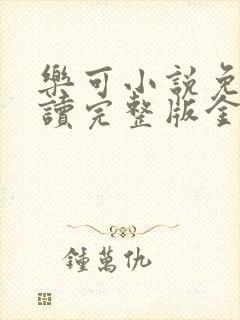 樂可小說免
讀完整版全
鍾萬仇